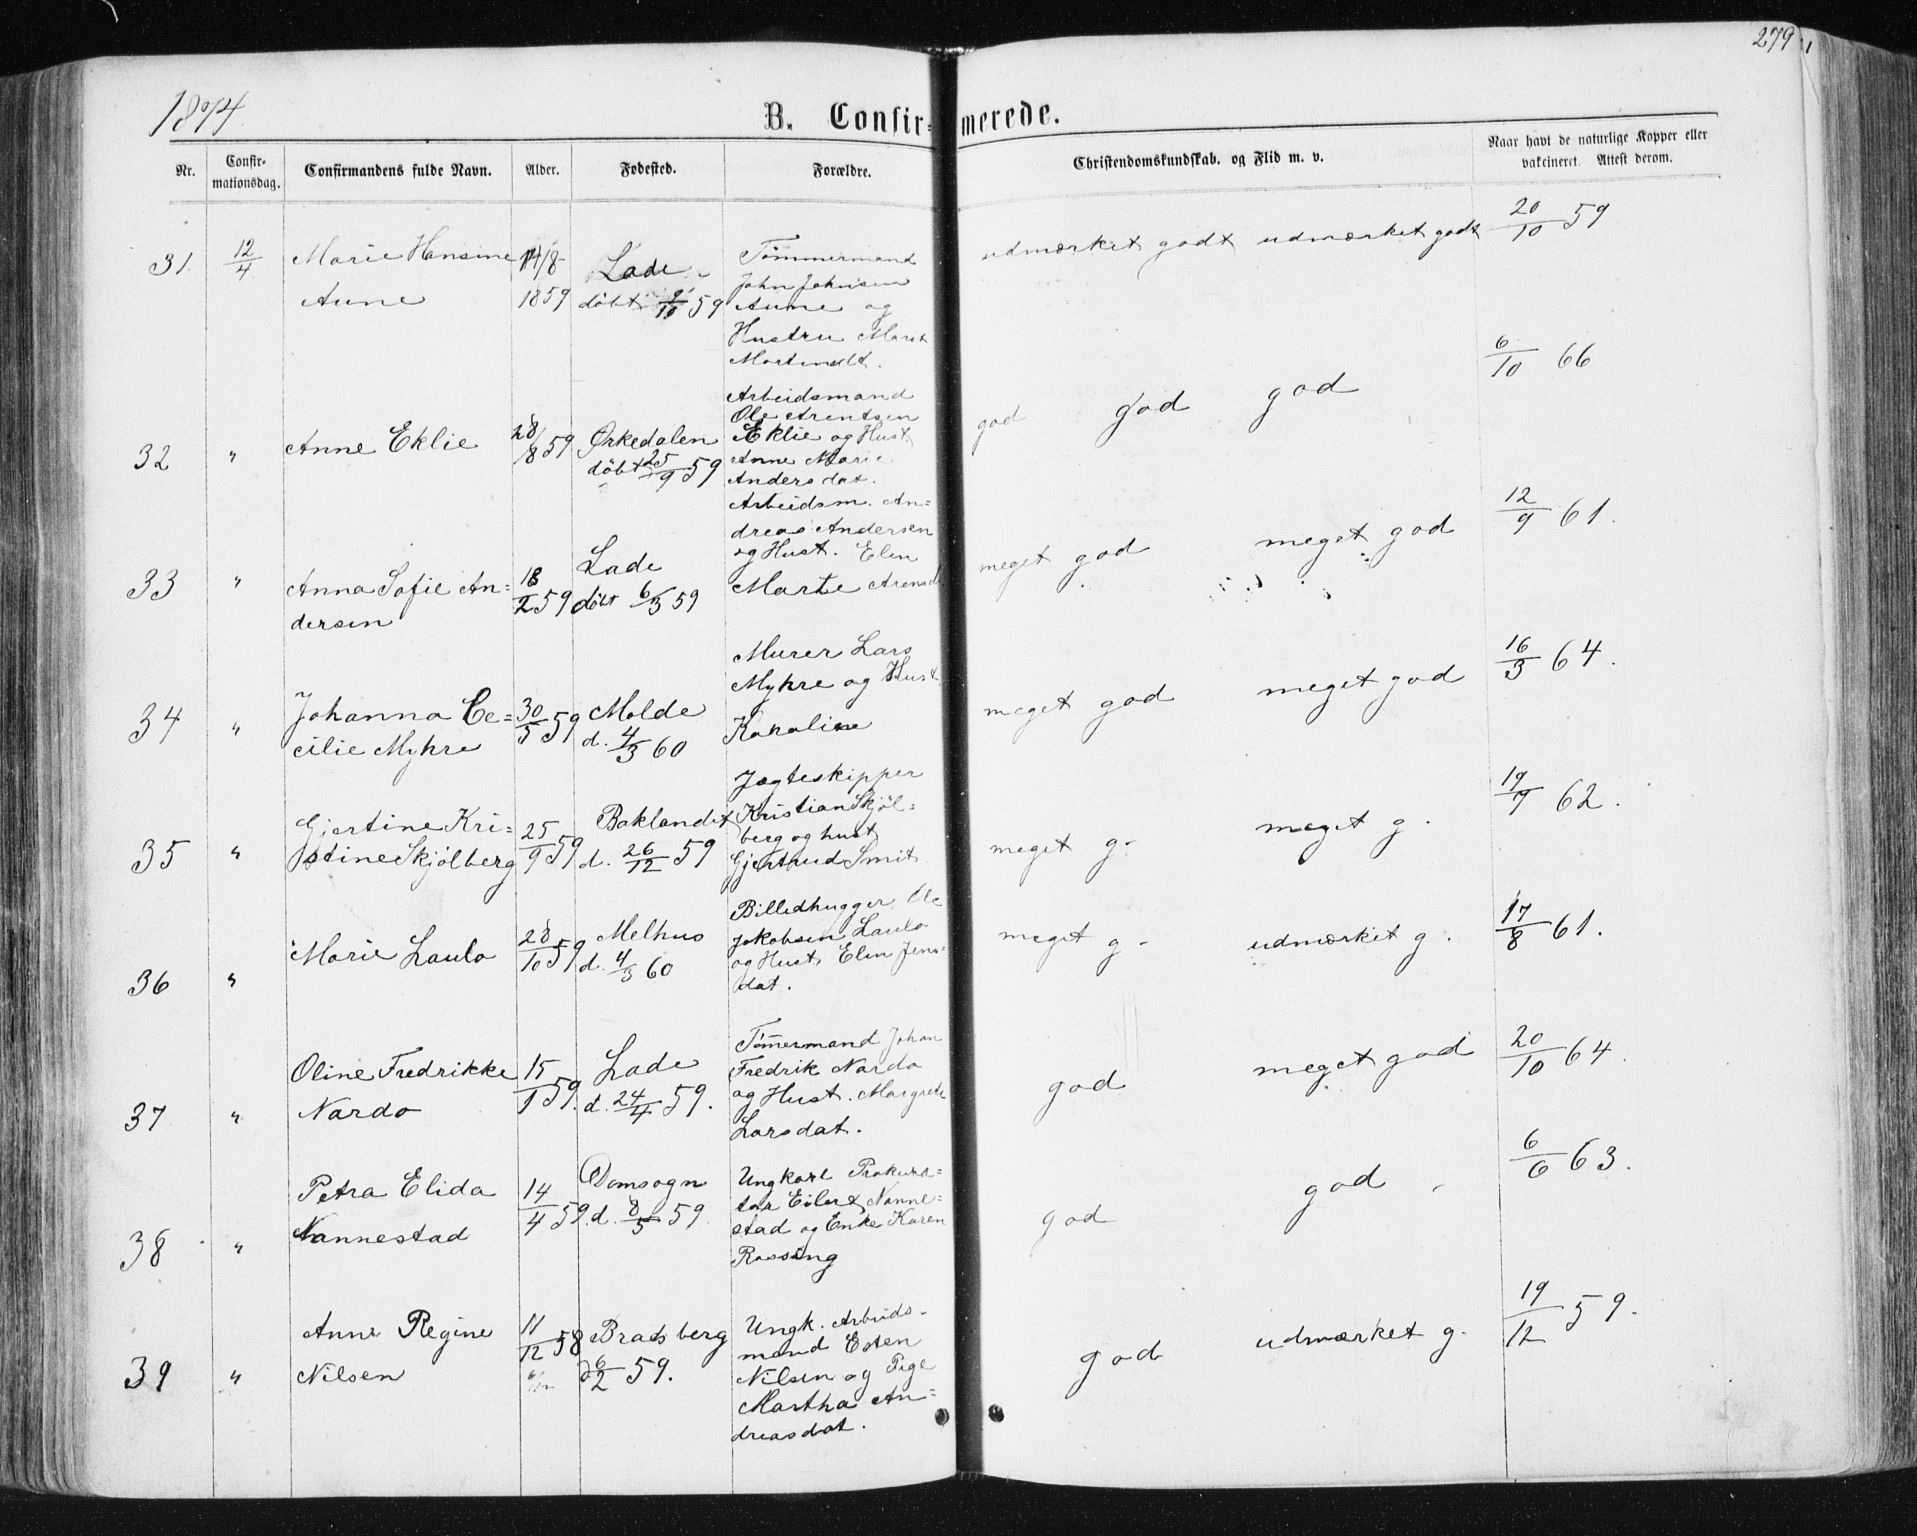 279
1874.
B. Confir=merede.
Nr. Confir-mationsdag. Confirmandens fulde Navn. Alder. Fødested. Forældre. Christendomskundskab. og Flid m. v. Naar havt de naturlige Kopper eller vakcineret. Attest derom.
31. 12/4 Marie Hansine 14/8 Lade Tømmermand udmærket godt udmærket godt 20/10 59
Aune 1859 døbt 2/10 59 John Johnsen
Aune og
Hustru Marit
Mortensdt.
Arbeidsmand
Ole Arentsen
32 " Anne Eklie 28/8 59 Ørkedalen Eklie og Hust. god god god 6/10 66
døbt 25/9 59 Anne Marie
Andersdat.
Arbeidsm. An=
dreas Andersen
Lade og Hust. Elen
33 " Anna Sofie An= 18/2 59 døbt 6/3 59 Marte Arensd meget god meget god 12/9 61.
dersen
Murer Lars
Myhre og Hust.
34 " Johanna Ce= 30/5 59 Molde Karoline meget god meget god 16/3 64.
cilie Myhre d. 4/3 60
Jægteskipper
Gjertine Kri= 25/9 59 Baklandet Kristian Skjøl=
35 " stine Skjølberg d. 26/12 59 berg og hust meget g. meget g. 19/9 62.
Gjertrud Smit
Billedhugger Ole
36 " Marie Laulo 28/10 59 Melhus Jakobsen Laulo meget g. udmærket g. 17/8 61.
d. 4/3 60 og Hust. Elen Jens=
dat.
Tømmermand Johan
37 " Oline Fredrikke 15/1 59. Lade Fredrik Nardo god meget god 20/10 64.
Nardo d. 24/4 59. og Hust. Margrete
Larsdat.
38 " Petra Elida 14/4 59. Domsogn Ungkarl Prokura= god god 6/6 63.
Nannestad d. 8/5 59. tør Eilert Nanne=
stad og Enke Karen
Rossing
39 " Anne Regine 11/12 58 Bradsberg Ungk. Arbeids- god udmærket g. 19/12 59.
Nilsen d 6/2 59. mand Esten
Nilsen og Pige
Martha An=
dreasdat.